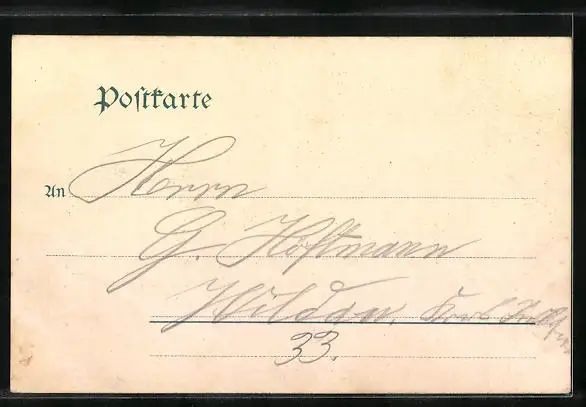 Postkarte
An Herrn
G. Hoffmann
Wildau,
33.